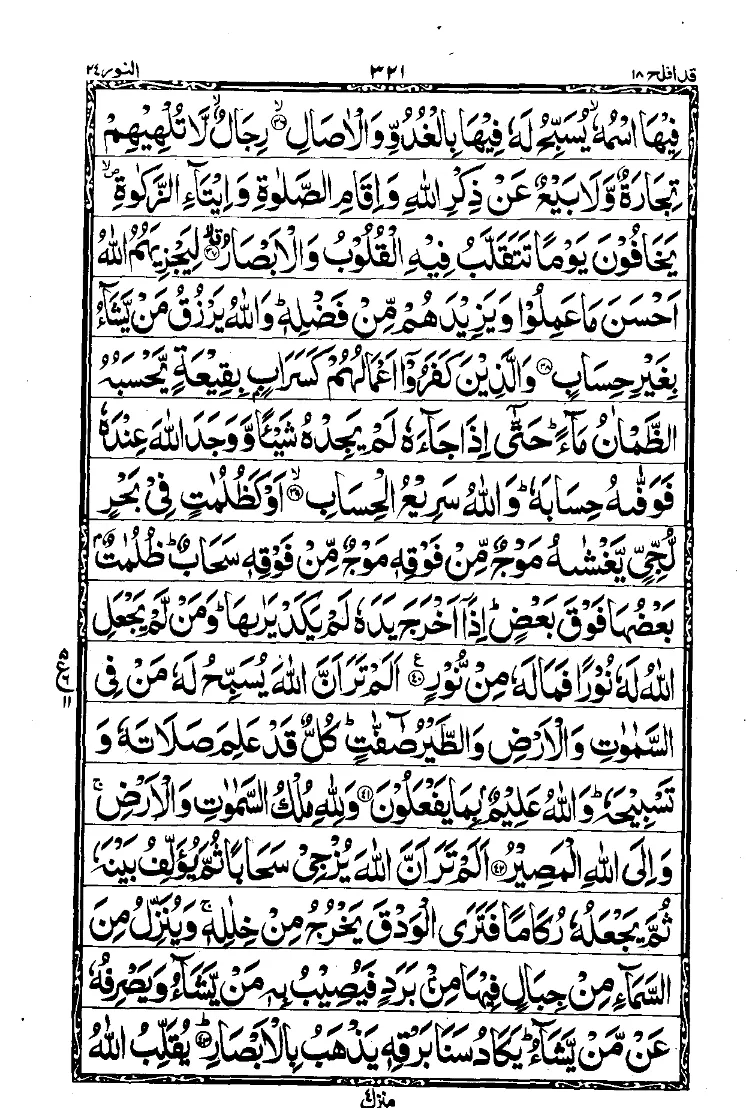 قد افلح ١٨ ٣٢١ النور ٢٤
فِيْهَا اسْمُهٗ ۙ يُسَبِّحُ لَهٗ فِيْهَا بِالْغُدُوِّ وَالْاٰصَالِ ۙ‏﴿۳۶﴾ رِجَالٌ ۙ لَّا تُلْهِيْهِمْ
تِجَارَةٌ وَّلَا بَيْعٌ عَنْ ذِكْرِ اللّٰهِ وَاِقَامِ الصَّلٰوةِ وَاِيْتَآءِ الزَّكٰوةِ ۙ
يَخَافُوْنَ يَوْمًا تَتَقَلَّبُ فِيْهِ الْقُلُوْبُ وَالْاَبْصَارُ ۙ‏﴿۳۷﴾ لِيَجْزِيَهُمُ اللّٰهُ
اَحْسَنَ مَا عَمِلُوْا وَيَزِيْدَهُمْ مِّنْ فَضْلِهٖ ؕ وَاللّٰهُ يَرْزُقُ مَنْ يَّشَآءُ
بِغَيْرِ حِسَابٍ‏﴿۳۸﴾ وَالَّذِيْنَ كَفَرُوْۤا اَعْمَالُهُمْ كَسَرَابٍۭ بِقِيْعَةٍ يَّحْسَبُهُ
الظَّمْاٰنُ مَآءً ؕ حَتّٰۤى اِذَا جَآءَهٗ لَمْ يَجِدْهُ شَيْـًٔا وَّوَجَدَ اللّٰهَ عِنْدَهٗ
فَوَفّٰىهُ حِسَابَهٗ ؕ وَاللّٰهُ سَرِيْعُ الْحِسَابِ ۙ‏﴿۳۹﴾ اَوْ كَظُلُمٰتٍ فِيْ بَحْرٍ
لُّجِّيٍّ يَّغْشٰىهُ مَوْجٌ مِّنْ فَوْقِهٖ مَوْجٌ مِّنْ فَوْقِهٖ سَحَابٌ ؕ ظُلُمٰتٌۢ
بَعْضُهَا فَوْقَ بَعْضٍ ؕ اِذَاۤ اَخْرَجَ يَدَهٗ لَمْ يَكَدْ يَرٰىهَا ؕ وَمَنْ لَّمْ يَجْعَلِ
اللّٰهُ لَهٗ نُوْرًا فَمَا لَهٗ مِنْ نُّوْرٍ‏﴿۴۰﴾ ع اَلَمْ تَرَ اَنَّ اللّٰهَ يُسَبِّحُ لَهٗ مَنْ فِي
السَّمٰوٰتِ وَالْاَرْضِ وَالطَّيْرُ صٰٓفّٰتٍ ؕ كُلٌّ قَدْ عَلِمَ صَلَاتَهٗ وَ
تَسْبِيْحَهٗ ؕ وَاللّٰهُ عَلِيْمٌۢ بِمَا يَفْعَلُوْنَ‏﴿۴۱﴾ وَلِلّٰهِ مُلْكُ السَّمٰوٰتِ وَالْاَرْضِ ۚ
وَاِلَى اللّٰهِ الْمَصِيْرُ‏﴿۴۲﴾ اَلَمْ تَرَ اَنَّ اللّٰهَ يُزْجِيْ سَحَابًا ثُمَّ يُؤَلِّفُ بَيْنَهٗ
ثُمَّ يَجْعَلُهٗ رُكَامًا فَتَرَى الْوَدْقَ يَخْرُجُ مِنْ خِلٰلِهٖ ۚ وَيُنَزِّلُ مِنَ
السَّمَآءِ مِنْ جِبَالٍ فِيْهَا مِنْۢ بَرَدٍ فَيُصِيْبُ بِهٖ مَنْ يَّشَآءُ وَيَصْرِفُهٗ
عَنْ مَّنْ يَّشَآءُ ؕ يَكَادُ سَنَا بَرْقِهٖ يَذْهَبُ بِالْاَبْصَارِ ؕ‏﴿۴۳﴾ يُقَلِّبُ اللّٰهُ
منزل ٤